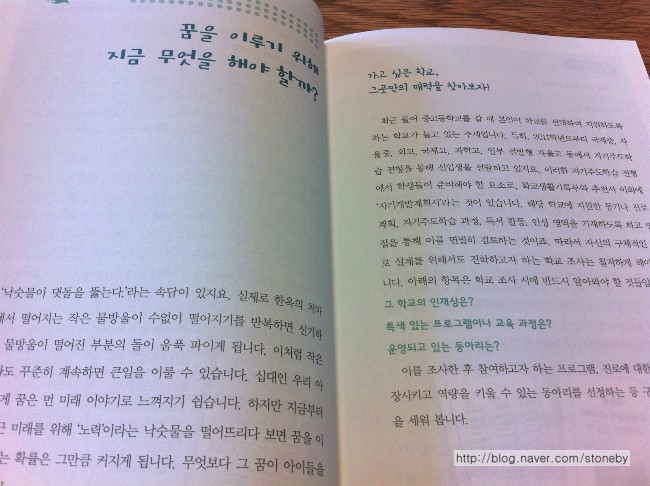 꿈을 이루기 위해
지금 무엇을 해야 할까?
'낙숫물이 댓돌을 뚫는다.'라는 속담이 있지요. 실제로 한옥의 처마
에서 떨어지는 작은 물방울이 수없이 떨어지기를 반복하면 신기하
물방울이 떨어진 부분의 돌이 움푹 파이게 됩니다. 이처럼 작은
라도 꾸준히 계속하면 큰일을 이룰 수 있습니다. 십대인 우리 아
게 꿈은 먼 미래 이야기로 느껴지기 쉽습니다. 하지만 지금부터
미래를 위해 '노력'이라는 낙숫물을 떨어뜨리다 보면 꿈을 이
는 확률은 그만큼 커지게 됩니다. 무엇보다 그 꿈이 아이들을
가고 싶은 학교,
그곳만의 매력을 찾아보자!
최근 들어 중고등학교를 갈 때 본인이 학교를 선택하여 지원하도록
하는 학교가 늘고 있는 추세입니다. 특히, 2011학년도부터 국제중, 자
율중, 외고, 국제고, 과학고, 일부 선발형 자율고 등에서 자기주도학
습 전형을 통해 신입생을 선발하고 있지요. 이러한 자기주도학습 전형
에서 학생들이 준비해야 할 요소로, 학교생활기록부와 추천서 이외에
'자기개발계획서'라는 것이 있습니다. 해당 학교에 지원한 동기나 진로
계획, 자기주도학습 과정, 독서 활동, 인성 영역을 기재하도록 하고 면
접을 통해 이를 면밀히 검토하는 것이죠. 따라서 자신의 구체적인
로 설계를 위해서도 진학하고자 하는 학교 조사는 철저하게 해야
니다. 아래의 항목은 학교 조사 시에 반드시 알아봐야 할 것들입
그 학교의 인재상은?
특색 있는 프로그램이나 교육 과정은?
운영되고 있는 동아리는?
이를 조사한 후 참여하고자 하는 프로그램, 진로에 대한
장시키고 역량을 키울 수 있는 동아리를 선정하는 등 구
을 세워 봅니다.
http://blog.naver.com/stoneby